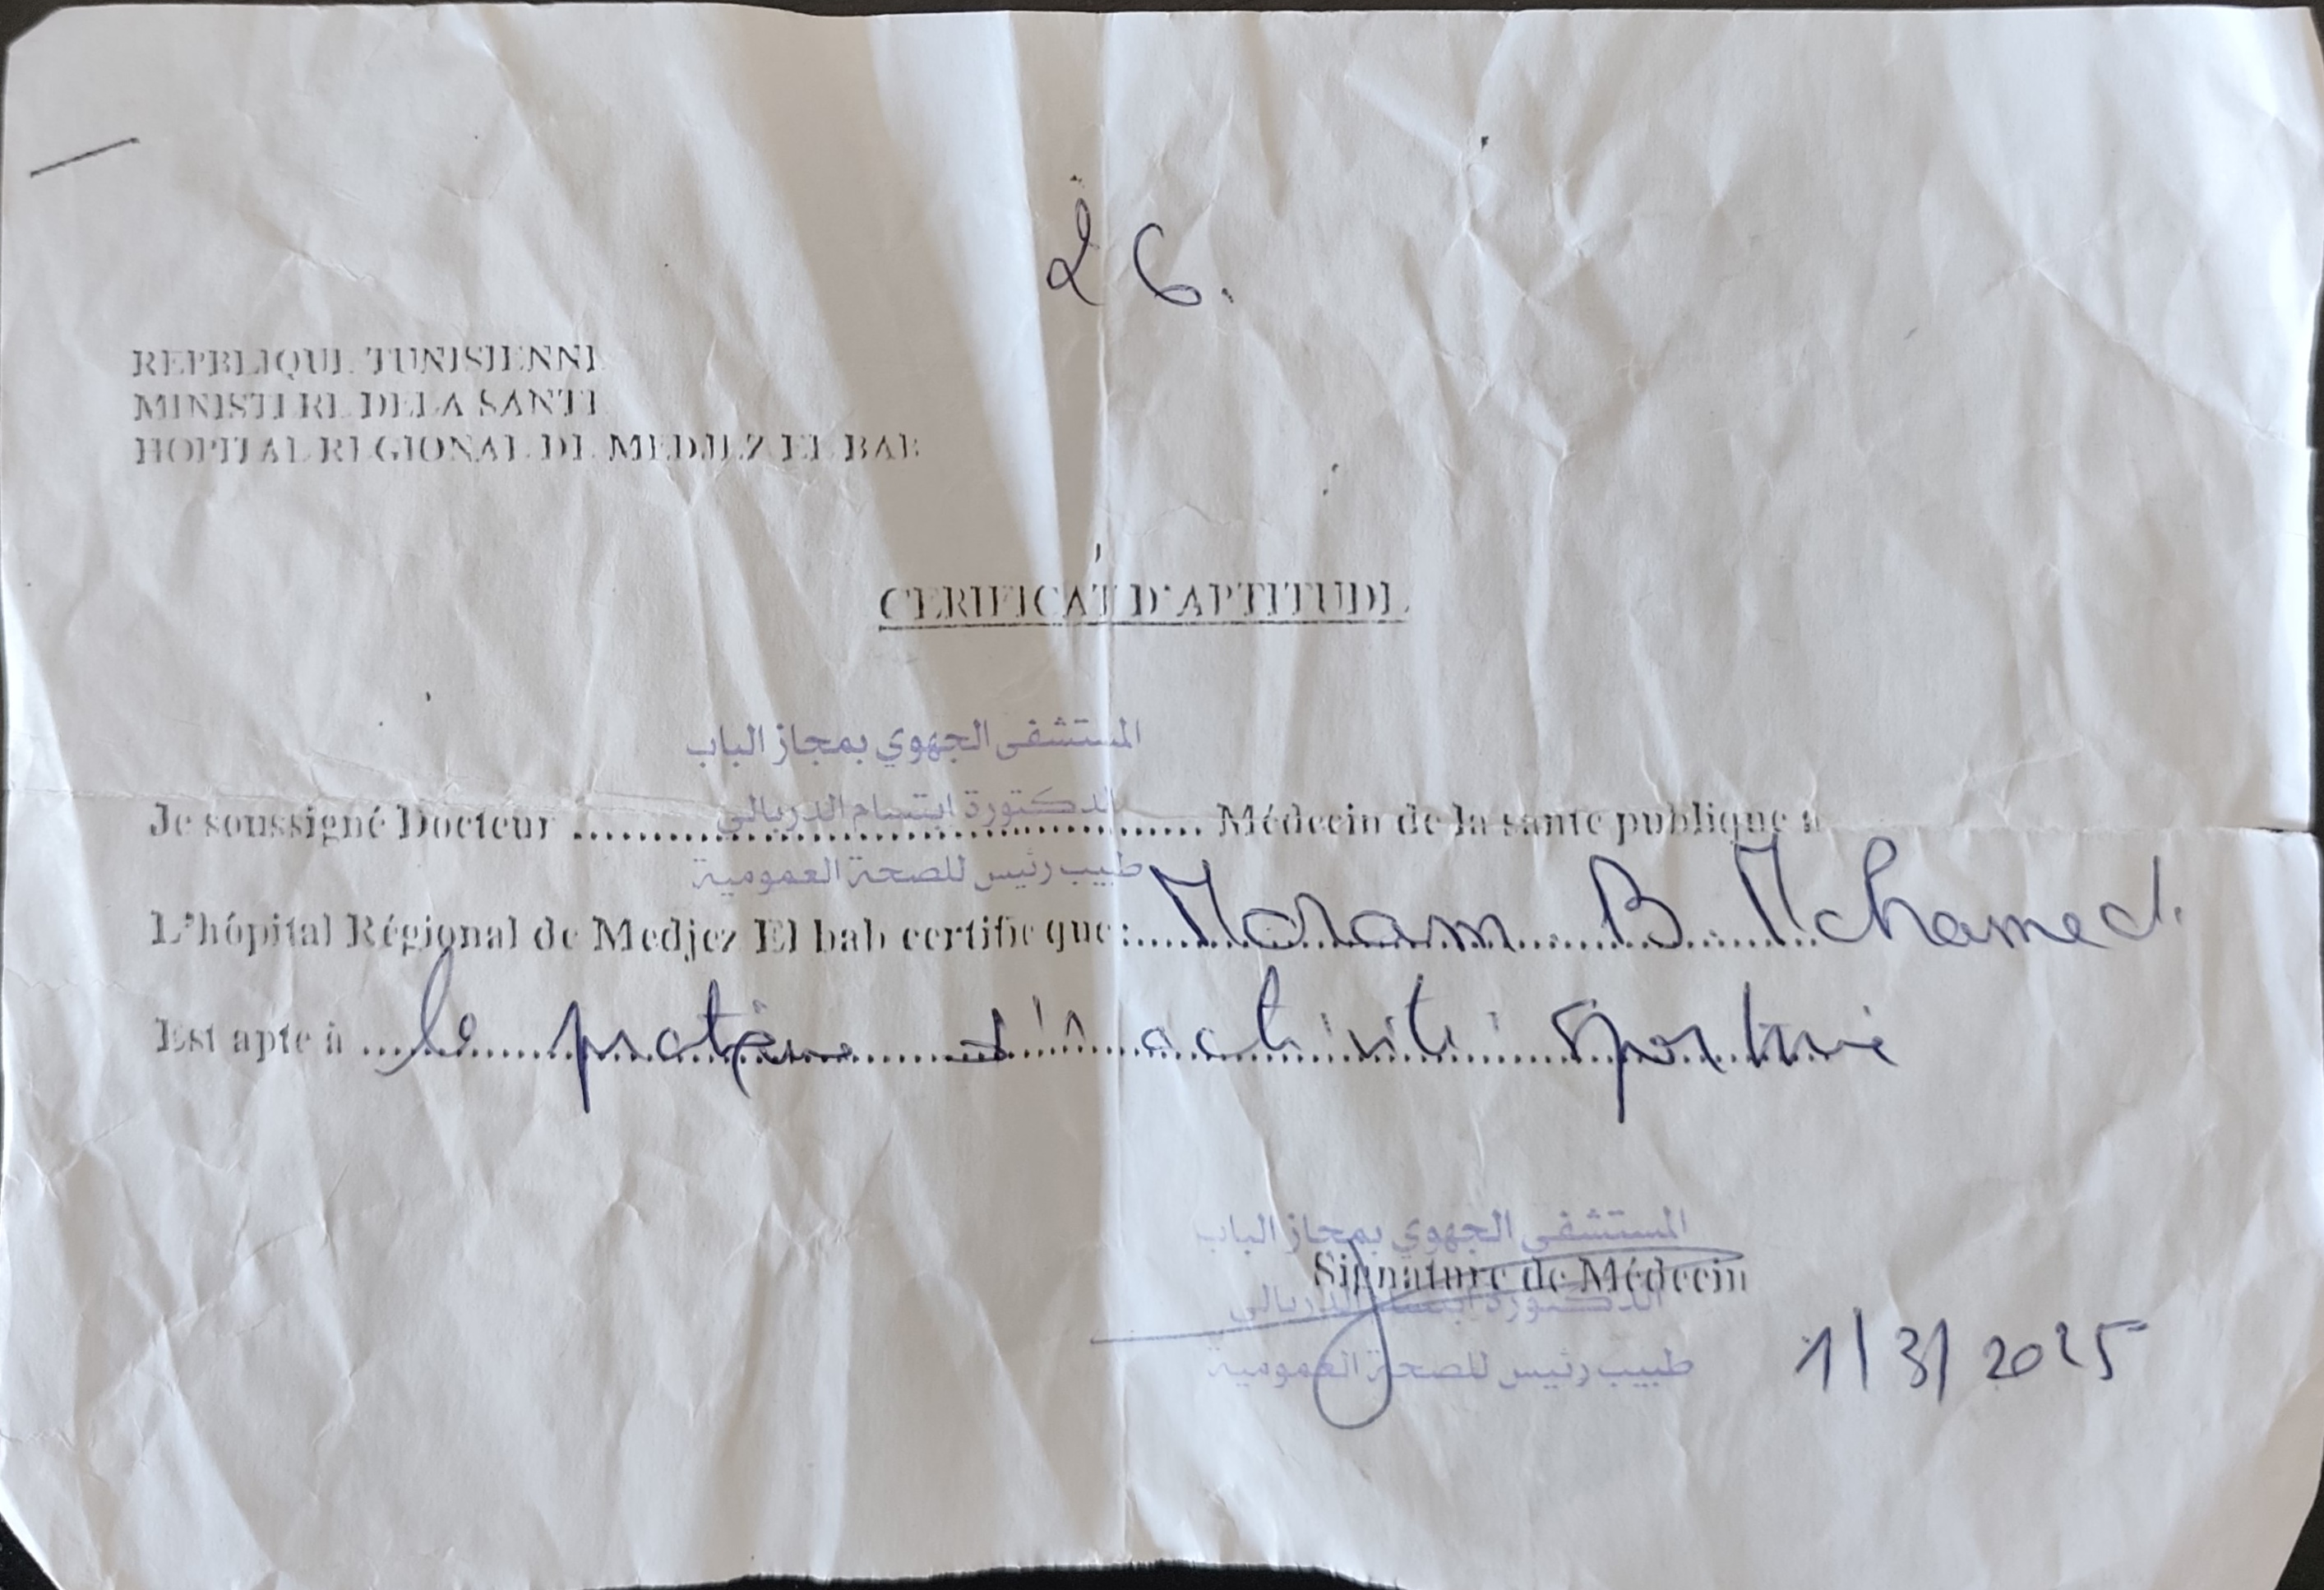 26.
REPBLIQUE TUNISIENNE
MINISTERE DE LA SANTE
HOPITAL REGIONAL DE MEDJEZ EL BAB
CERIFICAT D'APTITUDE
المستشفى الجهوي بمجاز الباب
الدكتورة ابتسام الدربالي
Je soussigné Docteur .......... Médecin de la santé publique à
طبيب رئيس للصحة العمومية
L'hôpital Régional de Medjez El bab certifie que : Maram B Mohamed
Est apte à la pratique d'1 activité sportive
المستشفى الجهوي بمجاز الباب
Signature de Médecin
الدكتورة ابتسام الدربالي
طبيب رئيس للصحة العمومية
1/3/2025